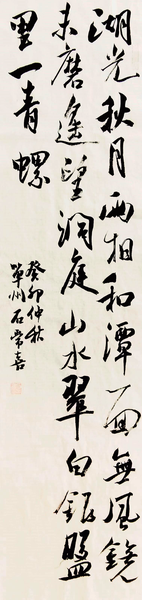 湖光秋月兩相和潭面無風鏡
未磨遙望洞庭山水翠白銀盤
里一青螺
癸卯仲秋
單州石常喜